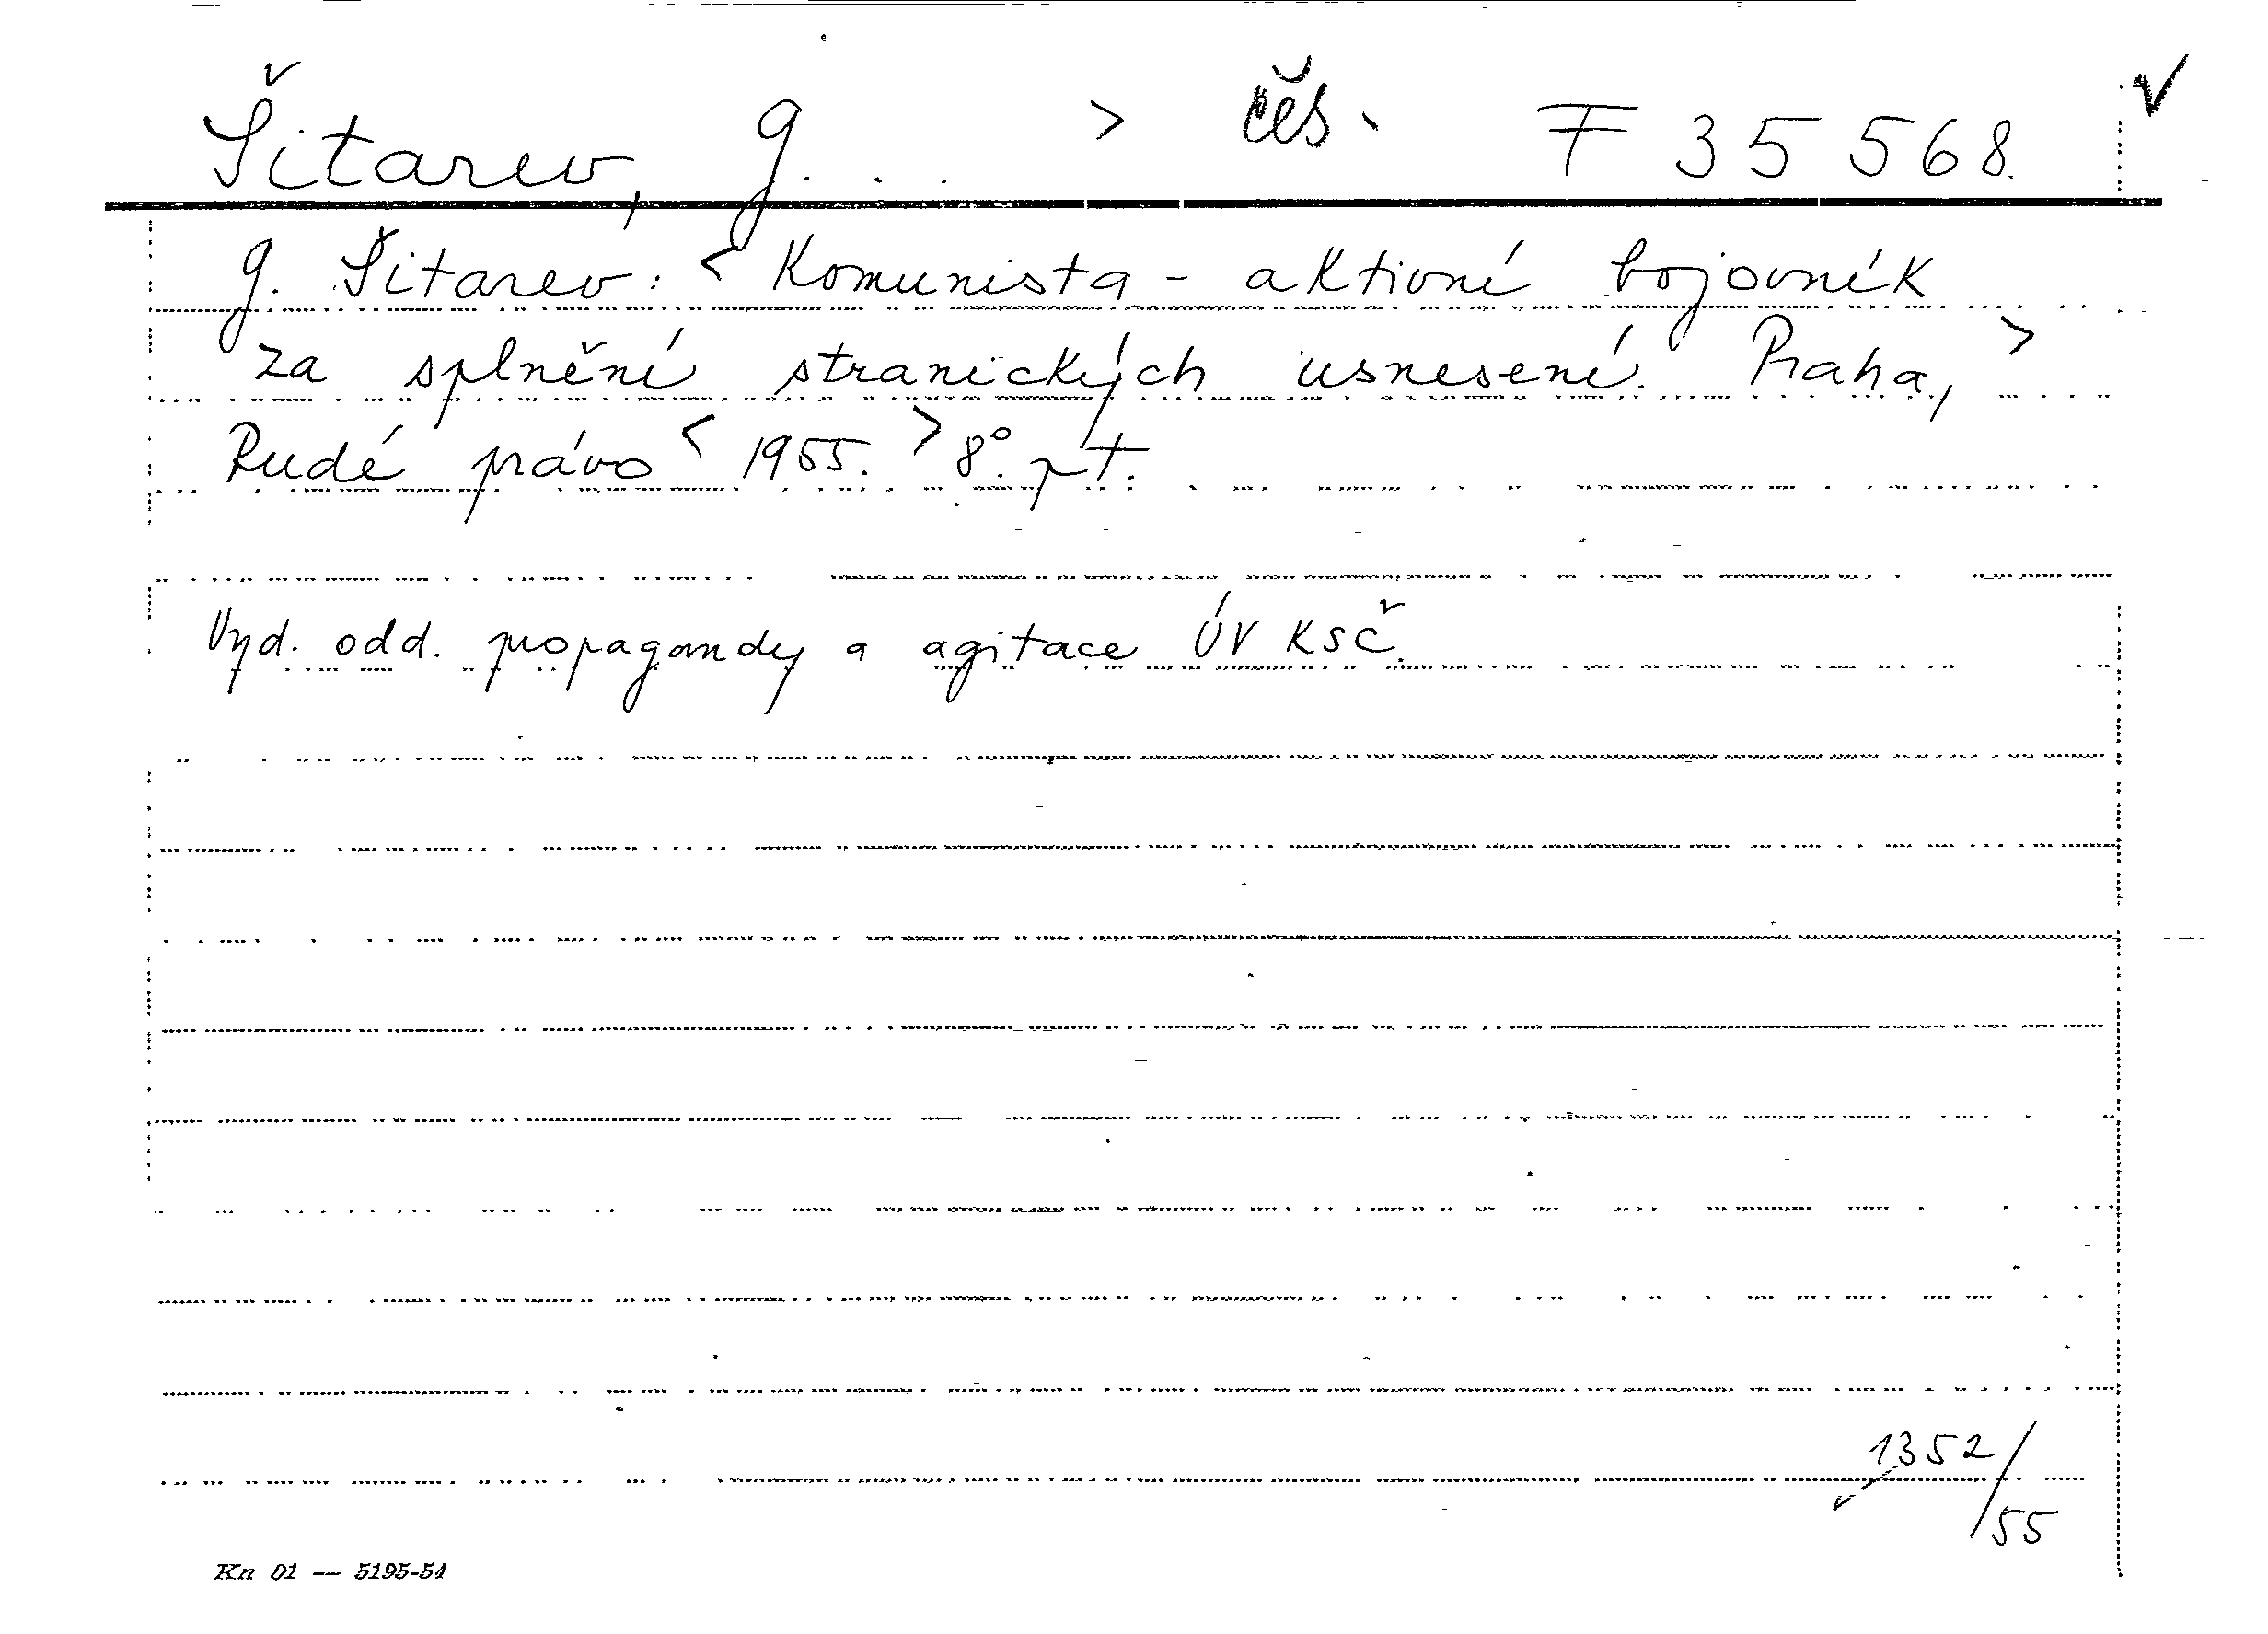 Šitarev, G. . . > čes. F 35 568.
G. Šitarev: < Komunista - aktivní bojovník
za splnění stranických usnesení. Praha, >
Rudé právo < 1955. > 8°. pt.
Vyd. odd. propagandy a agitace ÚV KSČ.
1352/55
Kn 01 — 5195-54